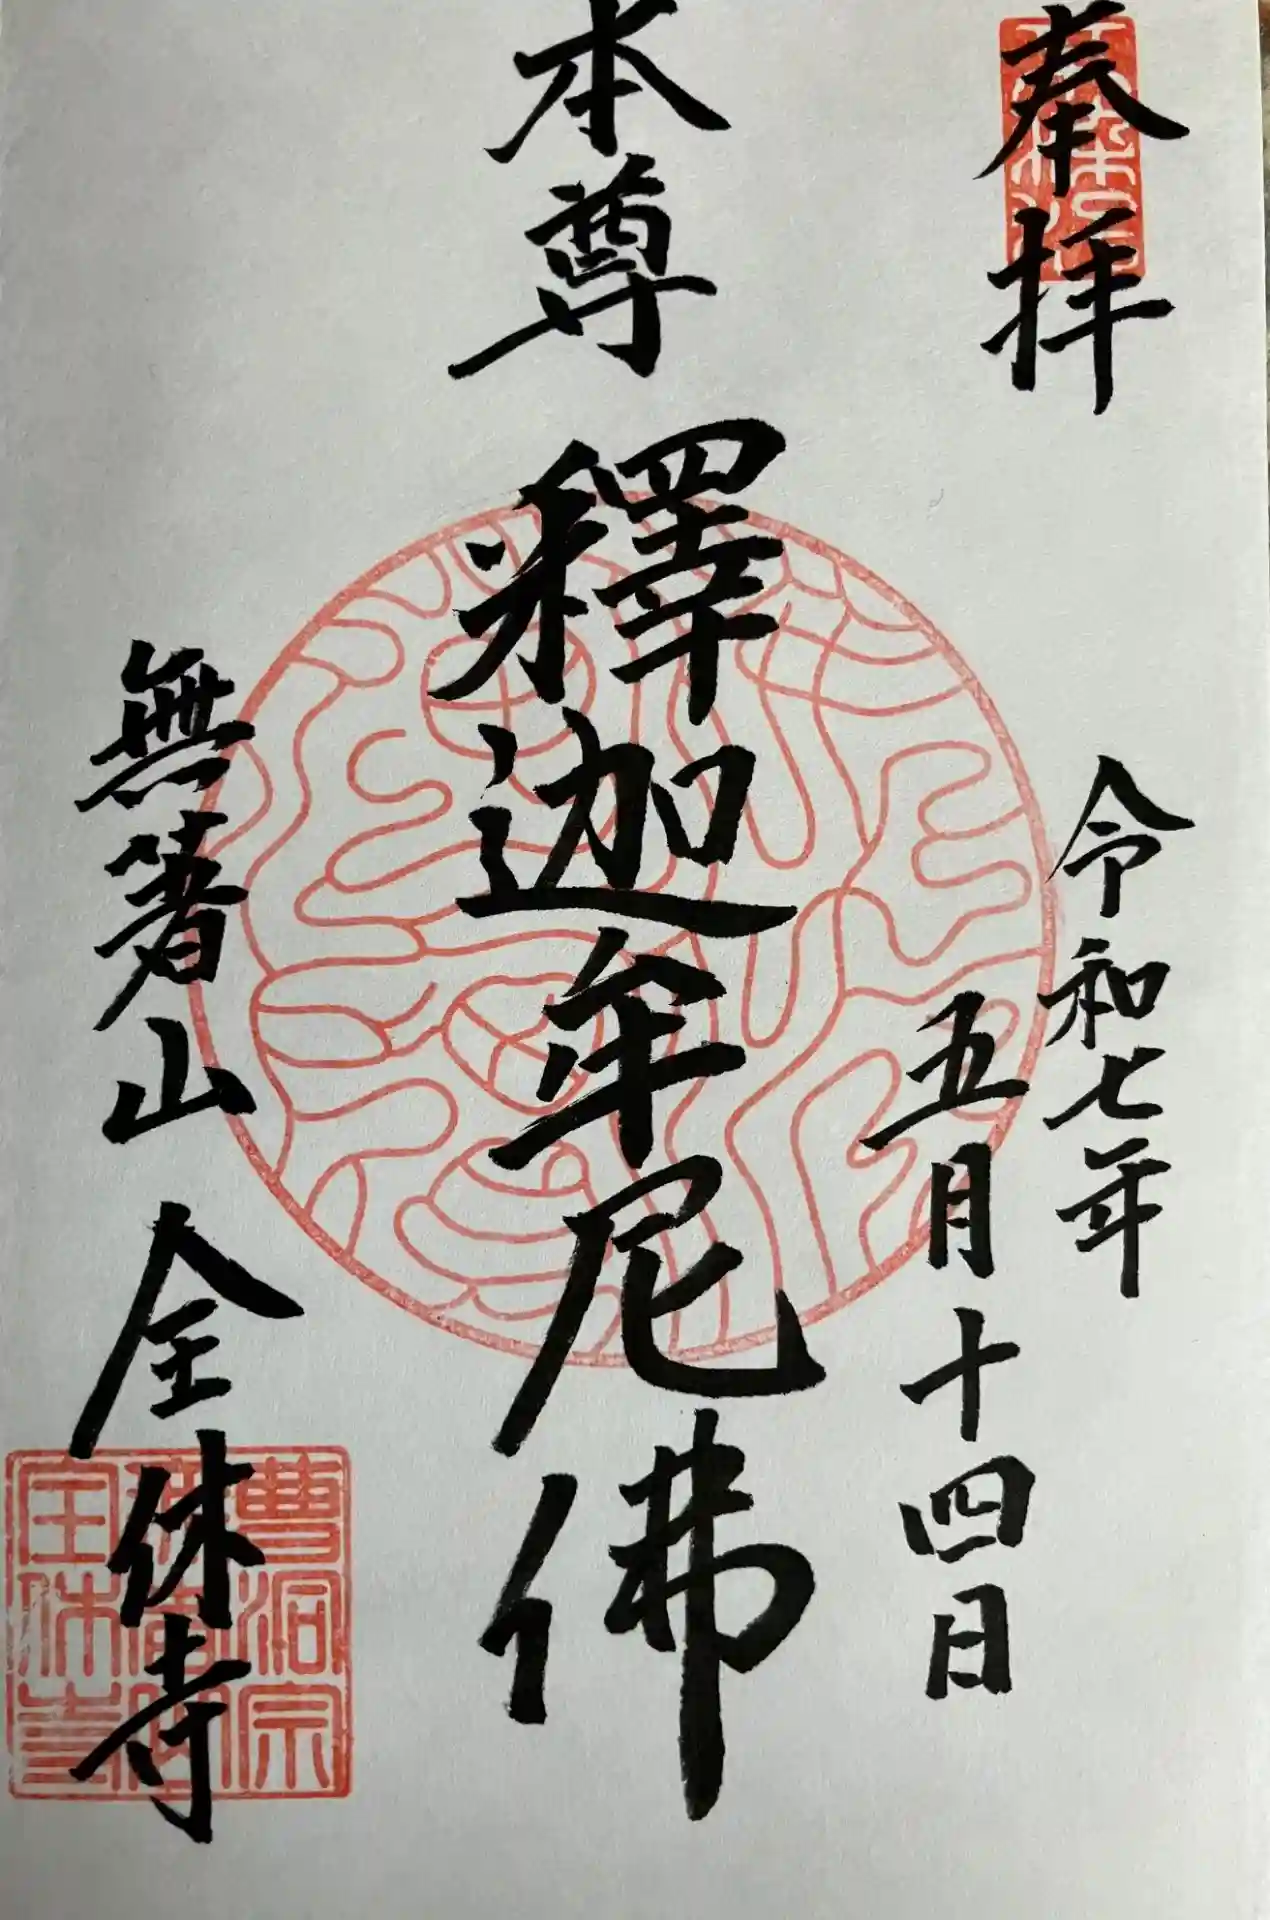 奉拝
令和七年
五月十四日
本尊
釋迦牟尼佛
無著山 全休寺
曹洞宗
全休寺